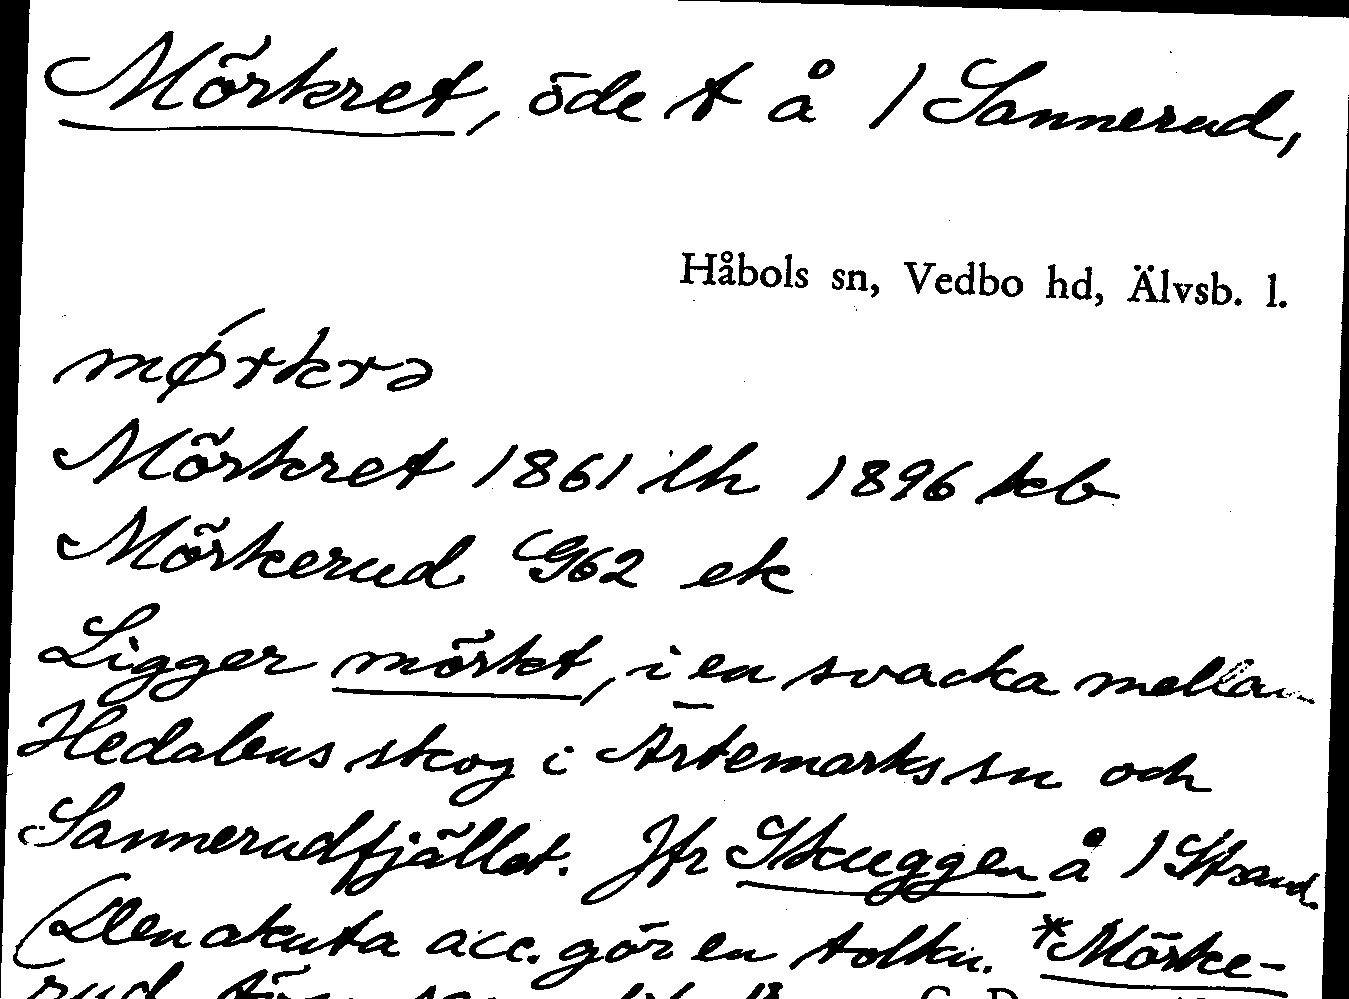 Mörkret, öde t å 1 Sannerud,
Håbols sn, Vedbo hd, Älvsb. l.
mǿrkrə
Mörkret 1861 lh 1896 kb
Mörkerud G62 ek
Ligger mörkt, i en svacka mellan
Hedalens skog i Ärtemarks sn och
Sannerudfjället. Jfr Skuggen å 1 Strand.
(Den akuta acc. gör en tolkn. *Mörke-
rud